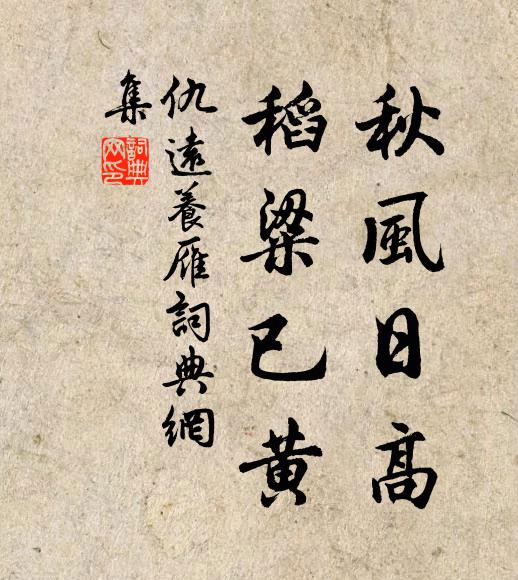 秋風日高
稻粱已黄
仇遠養雁詞典網
集
詞典網印